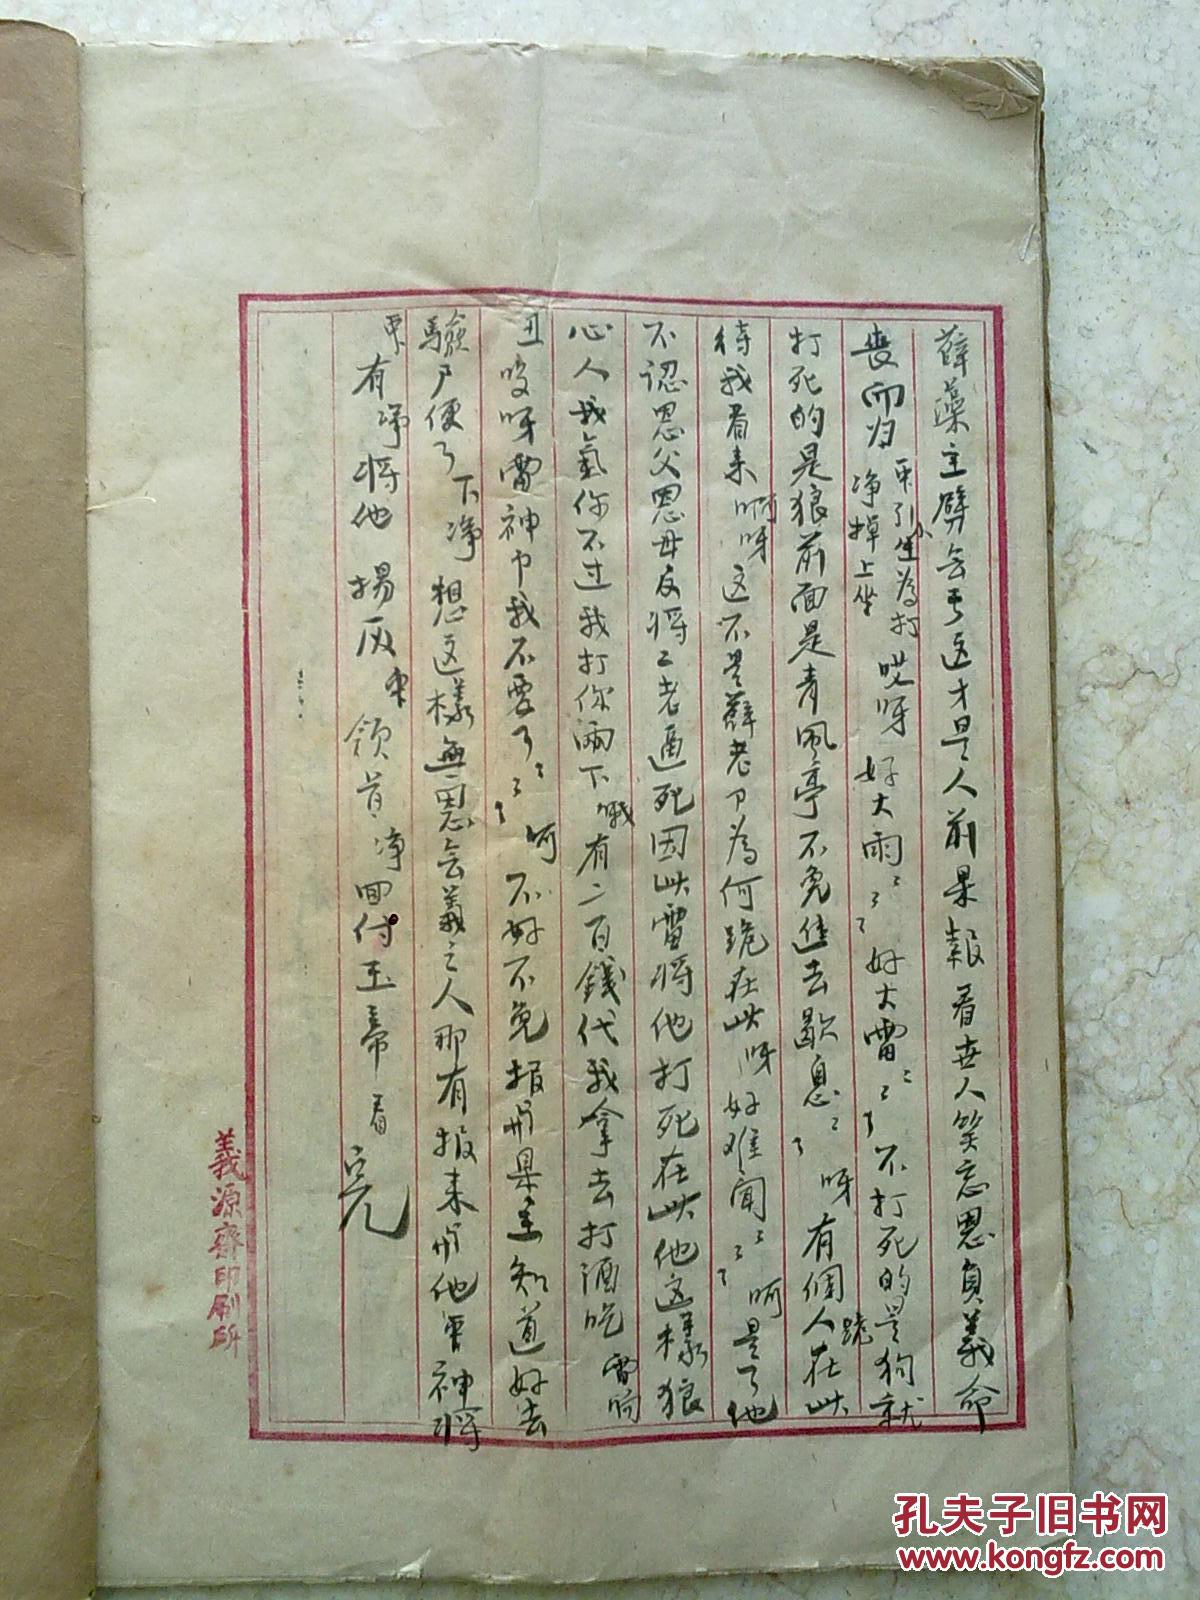 薛藻主劈会于这才是人前果報看世人笑忘恩負義命
喪而归 净掉上坐 为打 哎呀 好大雨 好大雷 不打死的是狗就
打死的是狼前面是青風亭不免進去歇息 呀有個人跪在此
待我看来 啊呀 这不是薛老 为何跪在此呀 好难聞 呵是了他
不認恩父恩母反将二老逼死因此雷将他打死在此他这樣狼
心人我氣你不过我打你兩下 哦 有二百錢代我拿去打酒吃 雷响
丑 呀雷神 我不要了 何 不好不免报 知道好去
驗尸便了 下净 想这樣無恩無義之人那有报来 他雷神将
有 净将他 領旨 净 回付玉帝 看 完
義源齋印刷所
孔夫子旧书网
www.kongfz.com